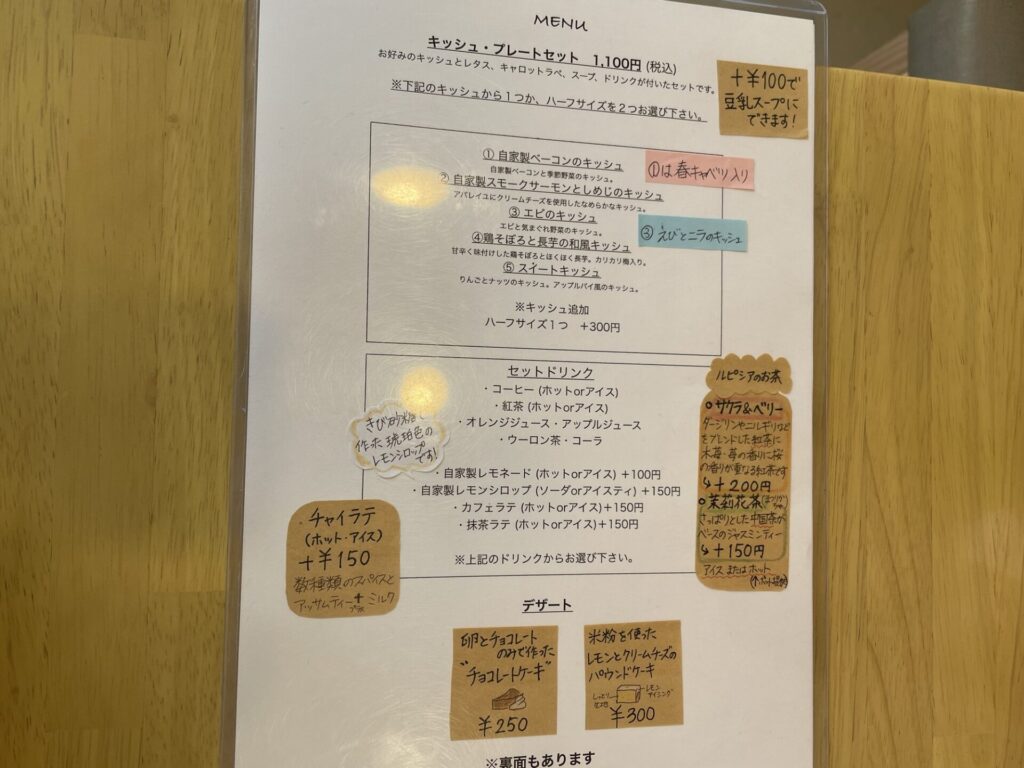 MENU
キッシュ・プレートセット 1,100円 (税込)
お好みのキッシュとレタス、キャロットラペ、スープ、ドリンクが付いたセットです。
※下記のキッシュから1つか、ハーフサイズを2つお選び下さい。
+¥100で
豆乳スープに
できます!
① 自家製ベーコンのキッシュ
自家製ベーコンと季節野菜のキッシュ。
①は春キャベツ入り
② 自家製スモークサーモンとしめじのキッシュ
アパレイユにクリームチーズを使用したなめらかなキッシュ。
③ エビのキッシュ
エビと気まぐれ野菜のキッシュ。
③ えびとニラのキッシュ
④鶏そぼろと長芋の和風キッシュ
甘辛く味付けした鶏そぼろとほくほく長芋。カリカリ梅入り。
⑤ スイートキッシュ
りんごとナッツのキッシュ。アップルパイ風のキッシュ。
※キッシュ追加
ハーフサイズ1つ +300円
セットドリンク
・コーヒー (ホットorアイス)
・紅茶 (ホットorアイス)
・オレンジジュース・アップルジュース
・ウーロン茶・コーラ
・自家製レモネード (ホットorアイス) +100円
・自家製レモンシロップ (ソーダorアイスティ) +150円
・カフェラテ (ホットorアイス)+150円
・抹茶ラテ (ホットorアイス)+150円
※上記のドリンクからお選び下さい。
きび砂糖で
作った琥珀色の
レモンシロップです!
チャイラテ
(ホット・アイス)
+¥150
数種類のスパイスと
アッサムティー+ミルク
プラス
ルピシアのお茶
サクラ&ベリー
ダージリンやニルギリなど
をブレンドした紅茶に
木苺・苺の香りに桜
の香りが重なる紅茶です
↳+200円
茉莉花茶(まつりか
ちゃ)
さっぱりとした中国茶が
ベースのジャスミンティー
↳+150円
アイス またはホット
デザート
卵とチョコレート
のみで作った
"チョコレートケーキ"
¥250
米粉を使った
レモンとクリームチーズの
パウンドケーキ
しっとり
生地
レモン
アイシング
¥300
※裏面もあります